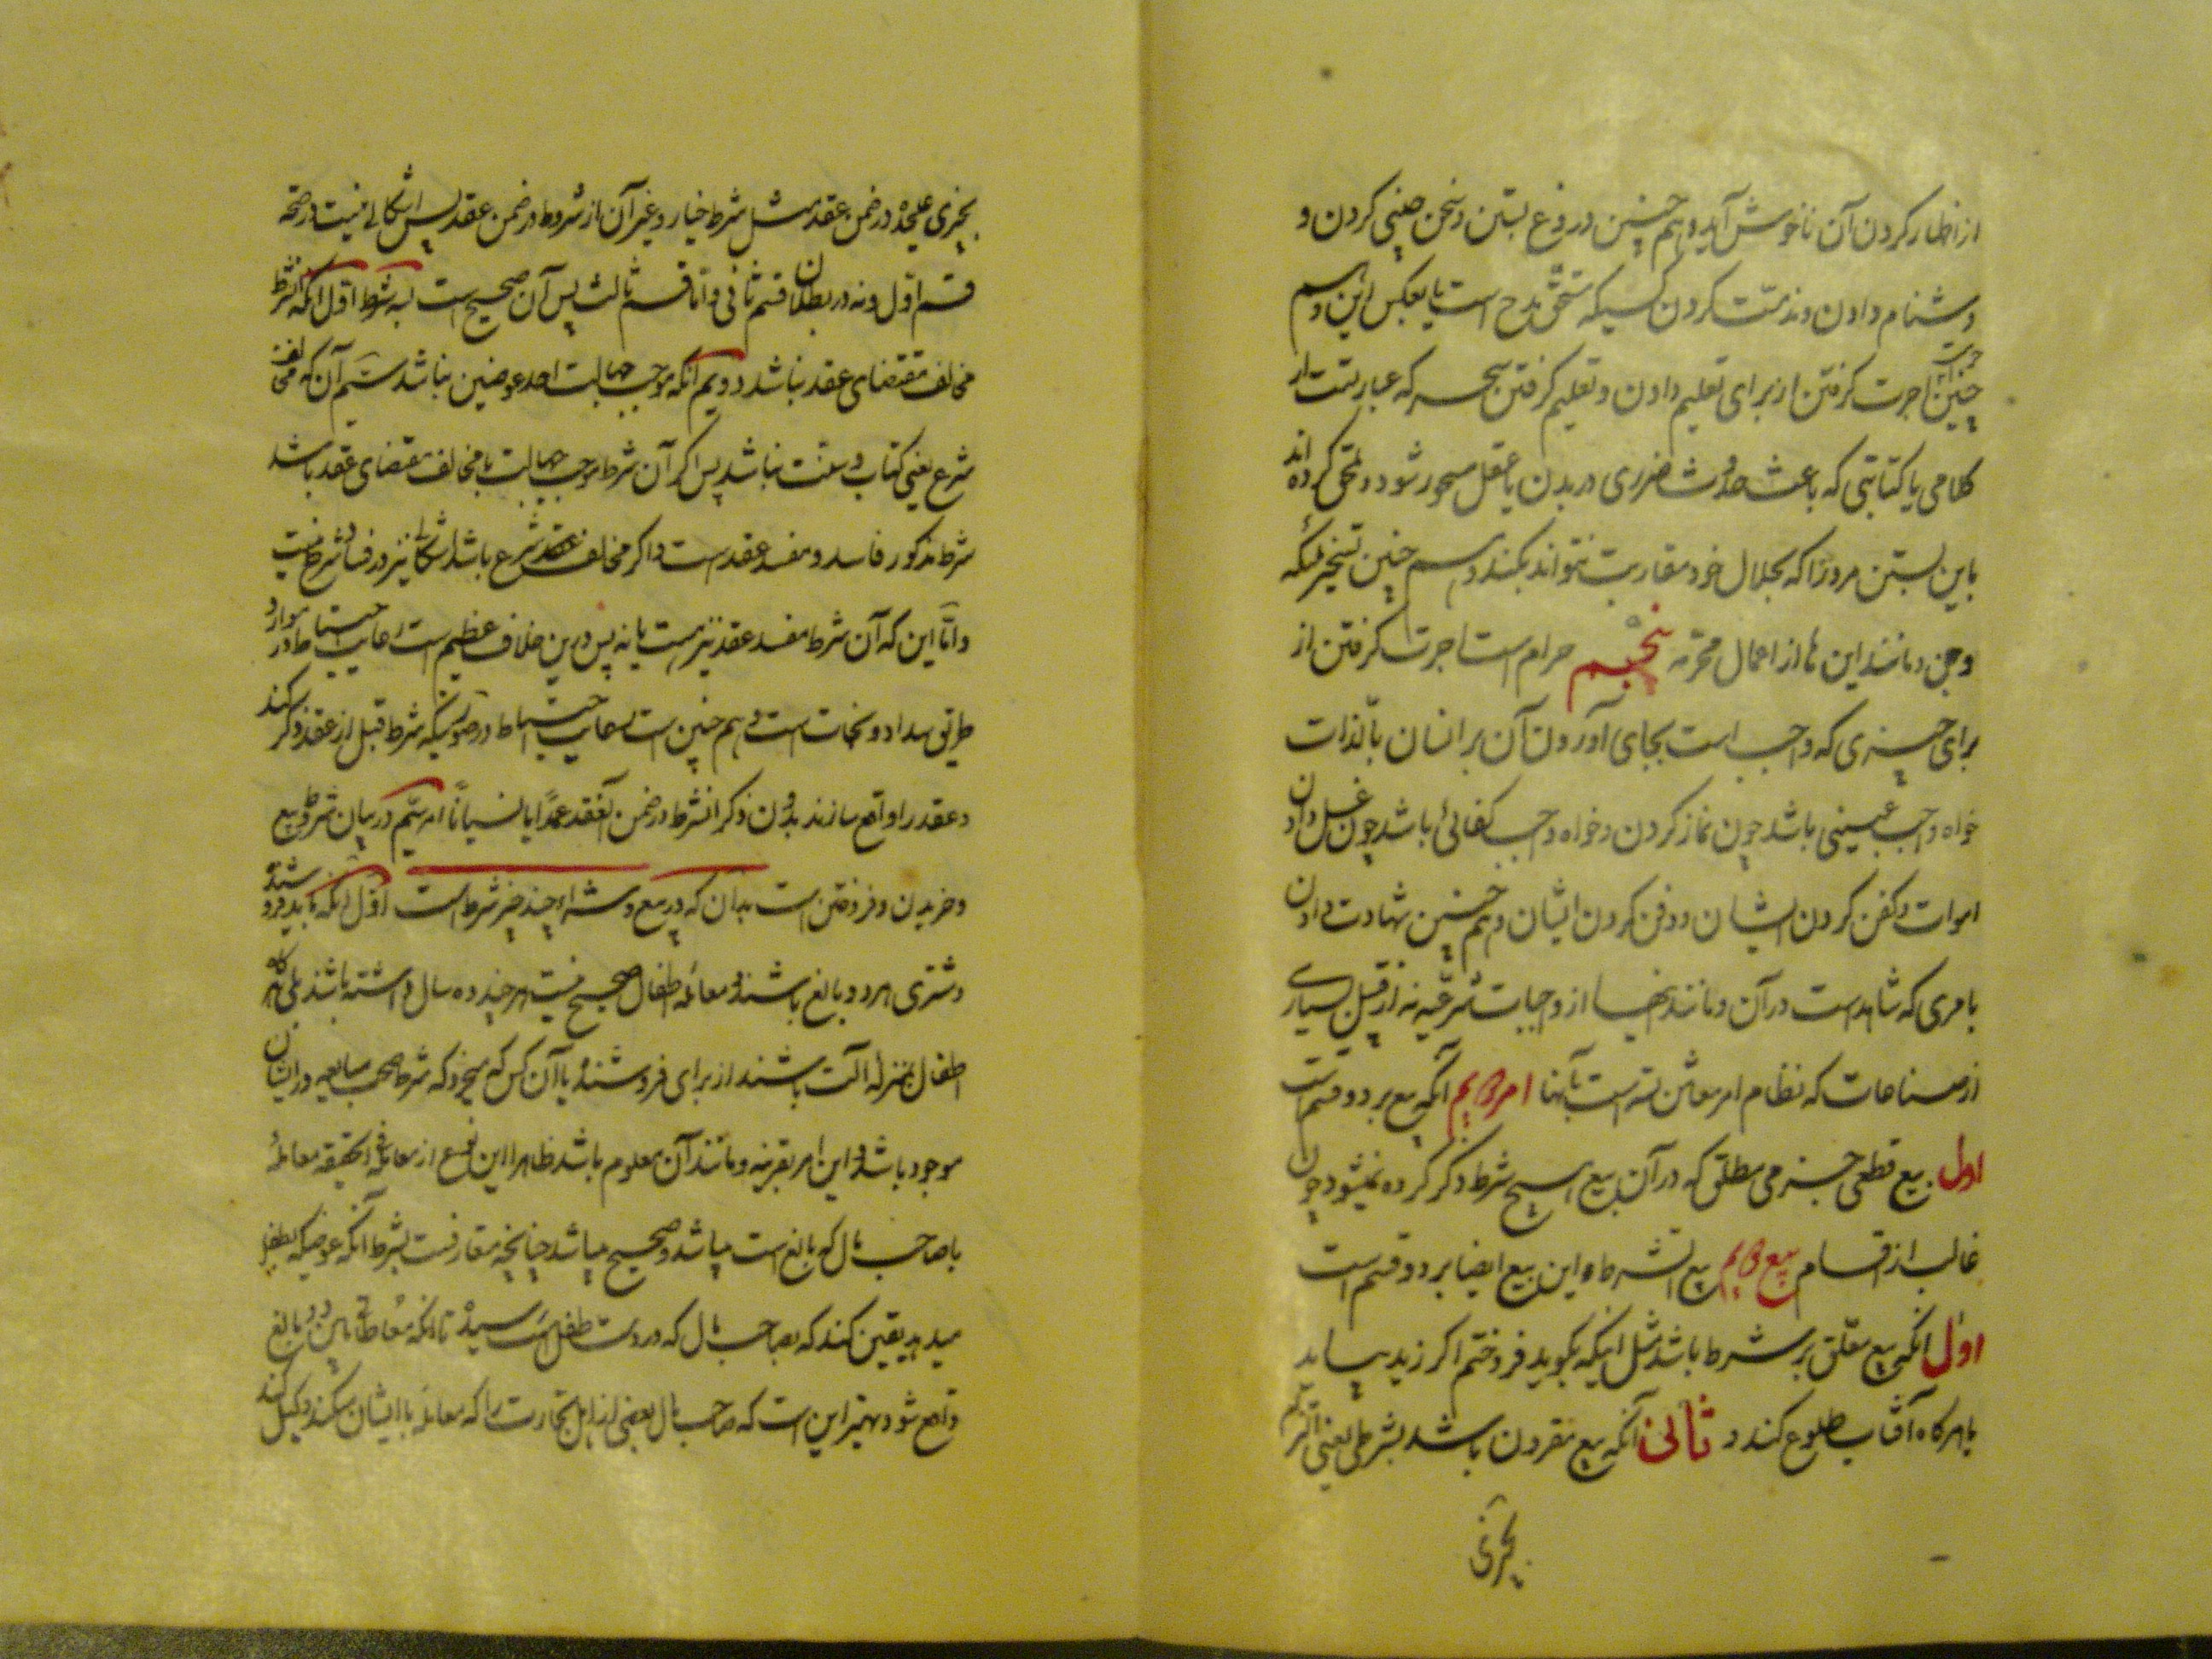 از اظهار کردن آن ناخوش آید و هم چنین دروغ بستن و سخن چینی کردن و
دشنام دادن و مذمت کردن کسیکه مستحق مدح است یا بعکس این و هم
چنین اجرت گرفتن از برای تعلیم دادن و تعلیم گرفتن سحر که عبارتست از
کلامی یا کتابتی که باعث حدوث ضرری در بدن یا عقل مسحور شود و ملحق کرده اند
باین بستن مرد را که بحلال خود مقاربت نتواند بکند و هم چنین تسخیر ملئکه
و جن و مانند این ها از اعمال محرمه پنجم حرام است اجرت گرفتن از
برای چیزی که واجب است بجای آوردن آن بر انسان بالذات
خواه واجب عینی باشد چون نماز کردن و خواه واجب کفائی باشد چون غسل دادن
اموات و کفن کردن ایشان و دفن کردن ایشان و هم چنین شهادت دادن
بامری که شاهد است در آن و مانند اینها از واجبات شرعیه نه از قبیل بسیاری
از صناعات که نظام امر معاش بسته است بآنها امر دویم آنکه بیع بر دو قسم است
اول بیع قطعی جزمی مطلق که در آن بیع هیچ شرط ذکر کرده نمیشود چون
غالب از اقسام بیع دویم بیع الشرط و این بیع ایضا بر دو قسم است
اول آنکه بیع معلق بر شرط باشد مثل اینکه بگوید فروختم اگر زید بیاید
یا هرگاه آفتاب طلوع کند و ثانی آنکه بیع مقرون باشد بشرطی یعنی التزام
بچیزی
بچیزی علیحده در ضمن عقد مثل شرط خیار و غیر آن از شروط در ضمن عقد پس اشکالی نیست در صحة
قسم اول و نه در بطلان قسم ثانی و اما قسم ثالث پس آن صحیح است بسه شرط اول آنکه آن شرط
مخالف مقتضای عقد نباشد دویم آنکه موجب جهالت احد عوضین نباشد سیم آن که مخالف
شرع یعنی کتاب و سنت نباشد پس اگر آن شرط موجب جهالت یا مخالف مقتضای عقد باشد
شرط مذکور فاسد و مفسد عقد است و اگر مخالف شرع باشد اشکالی نیز در فساد شرط نیست
و اما این که آن شرط مفسد عقد نیز هست یا نه پس در این خلاف عظیم است رعایت احتیاط در موارد
طریق سداد و نجات است و هم چنین است رعایت احتیاط در صورتیکه شرط قبل از عقد ذکر کند
و عقد را واقع سازند بدون ذکر آن شرط در ضمن آن عقد عمدا یا نسیانا امر سیم در بیان شروط بیع
و خریدن و فروختن است بدان که در بیع و شراء چند چیز شرط است اول آنکه باید فروشنده
و مشتری هر دو بالغ باشند و معامله اطفال صحیح نیست هر چند ده سال داشته باشند بلی هر گاه
اطفال بمنزله آلت باشند از برای فروشنده یا آن کس که میخرد که شرط صحت مبایعه در ایشان
موجود باشد و این امر بقرینه و مانند آن معلوم باشد ظاهرا این نوع از معامله فی الحقیقه معامله
با صاحب مال که بالغ است میباشد و صحیح میباشد چنانچه متعارفست بشرط آنکه عوضیکه بطفل
میدهد یقین کند که بصاحب مال که در دست طفل است رسیده تا آنکه معاطات مابین دو بالغ
واقع شود و بهتر این است که صاحب مال بعضی از اهل تجارت را که معامله با ایشان میکند وکیل کند